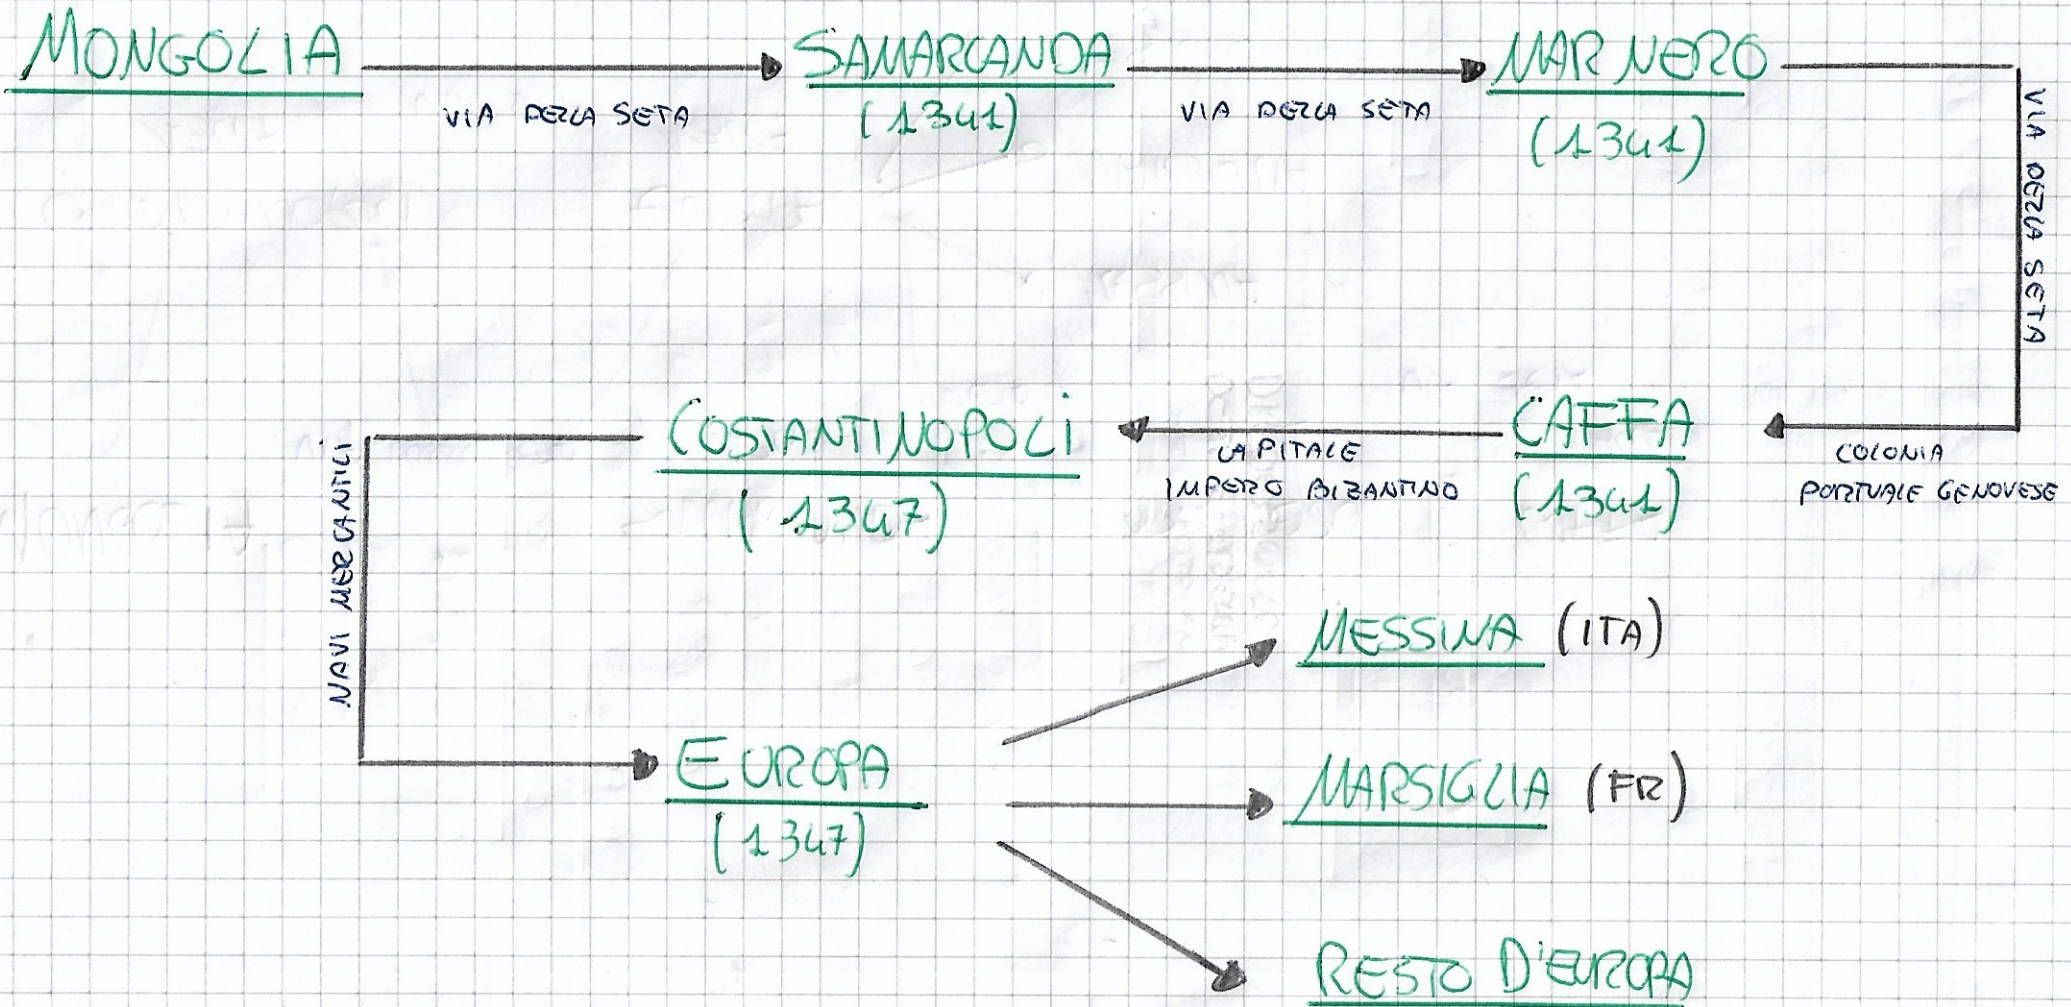 MONGOLIA
VIA DELLA SETA
SAMARCANDA
(1341)
VIA DELLA SETA
MAR NERO
(1341)
VIA DELLA SETA
COLONIA
PORTUALE GENOVESE
CAFFA
(1341)
CAPITALE
IMPERO BIZANTINO
COSTANTINOPOLI
(1347)
NAVI MERCANTILI
EUROPA
(1347)
MESSINA (ITA)
MARSIGLIA (FR)
RESTO D'EUROPA